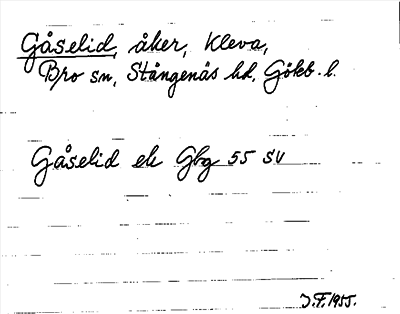 Gåselid, åker, Kleva,
Bro sn, Stångenäs hd, Göteb. l.
Gåselid ek Gbg 55 SV
J.F. 1955.